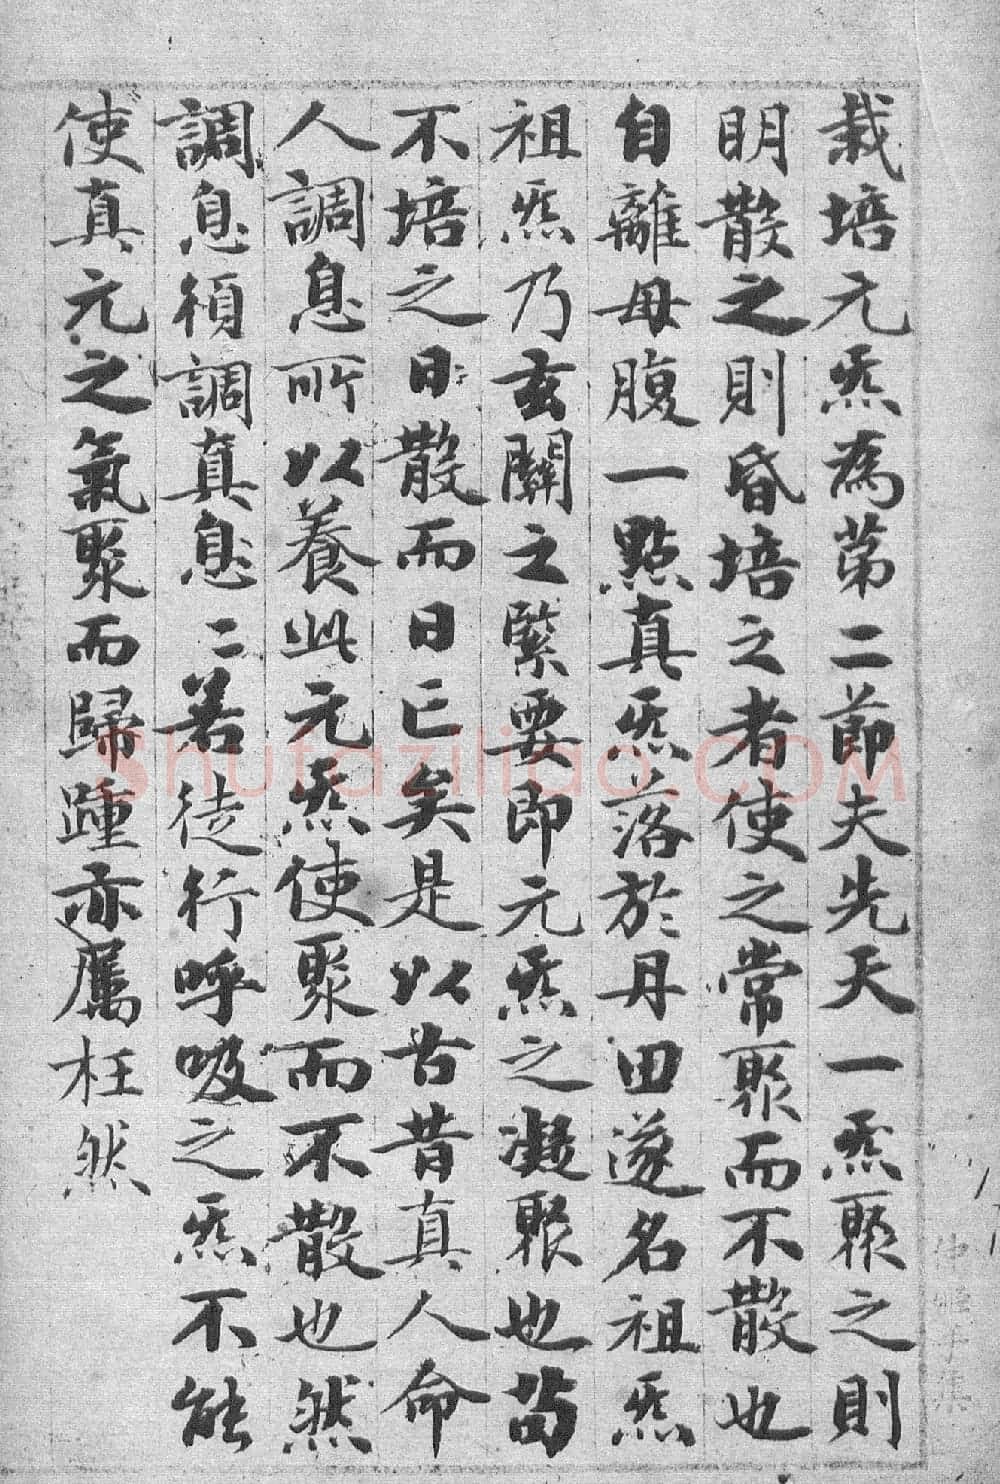 栽培元炁為第二節夫先天一炁聚之則
明散之則昏培之者使之常聚而不散也
自離母腹一點真炁落於丹田遂名祖炁
祖炁乃玄關之緊要即元炁之凝聚也苟
不培之日〻散而日亡矣是以古昔真人命
人調息所以養此元炁使聚而不散也然
調息須調真息二若徒行呼吸之炁不能
使真元之氣聚而歸踵亦屬枉然
shufaziliao.com